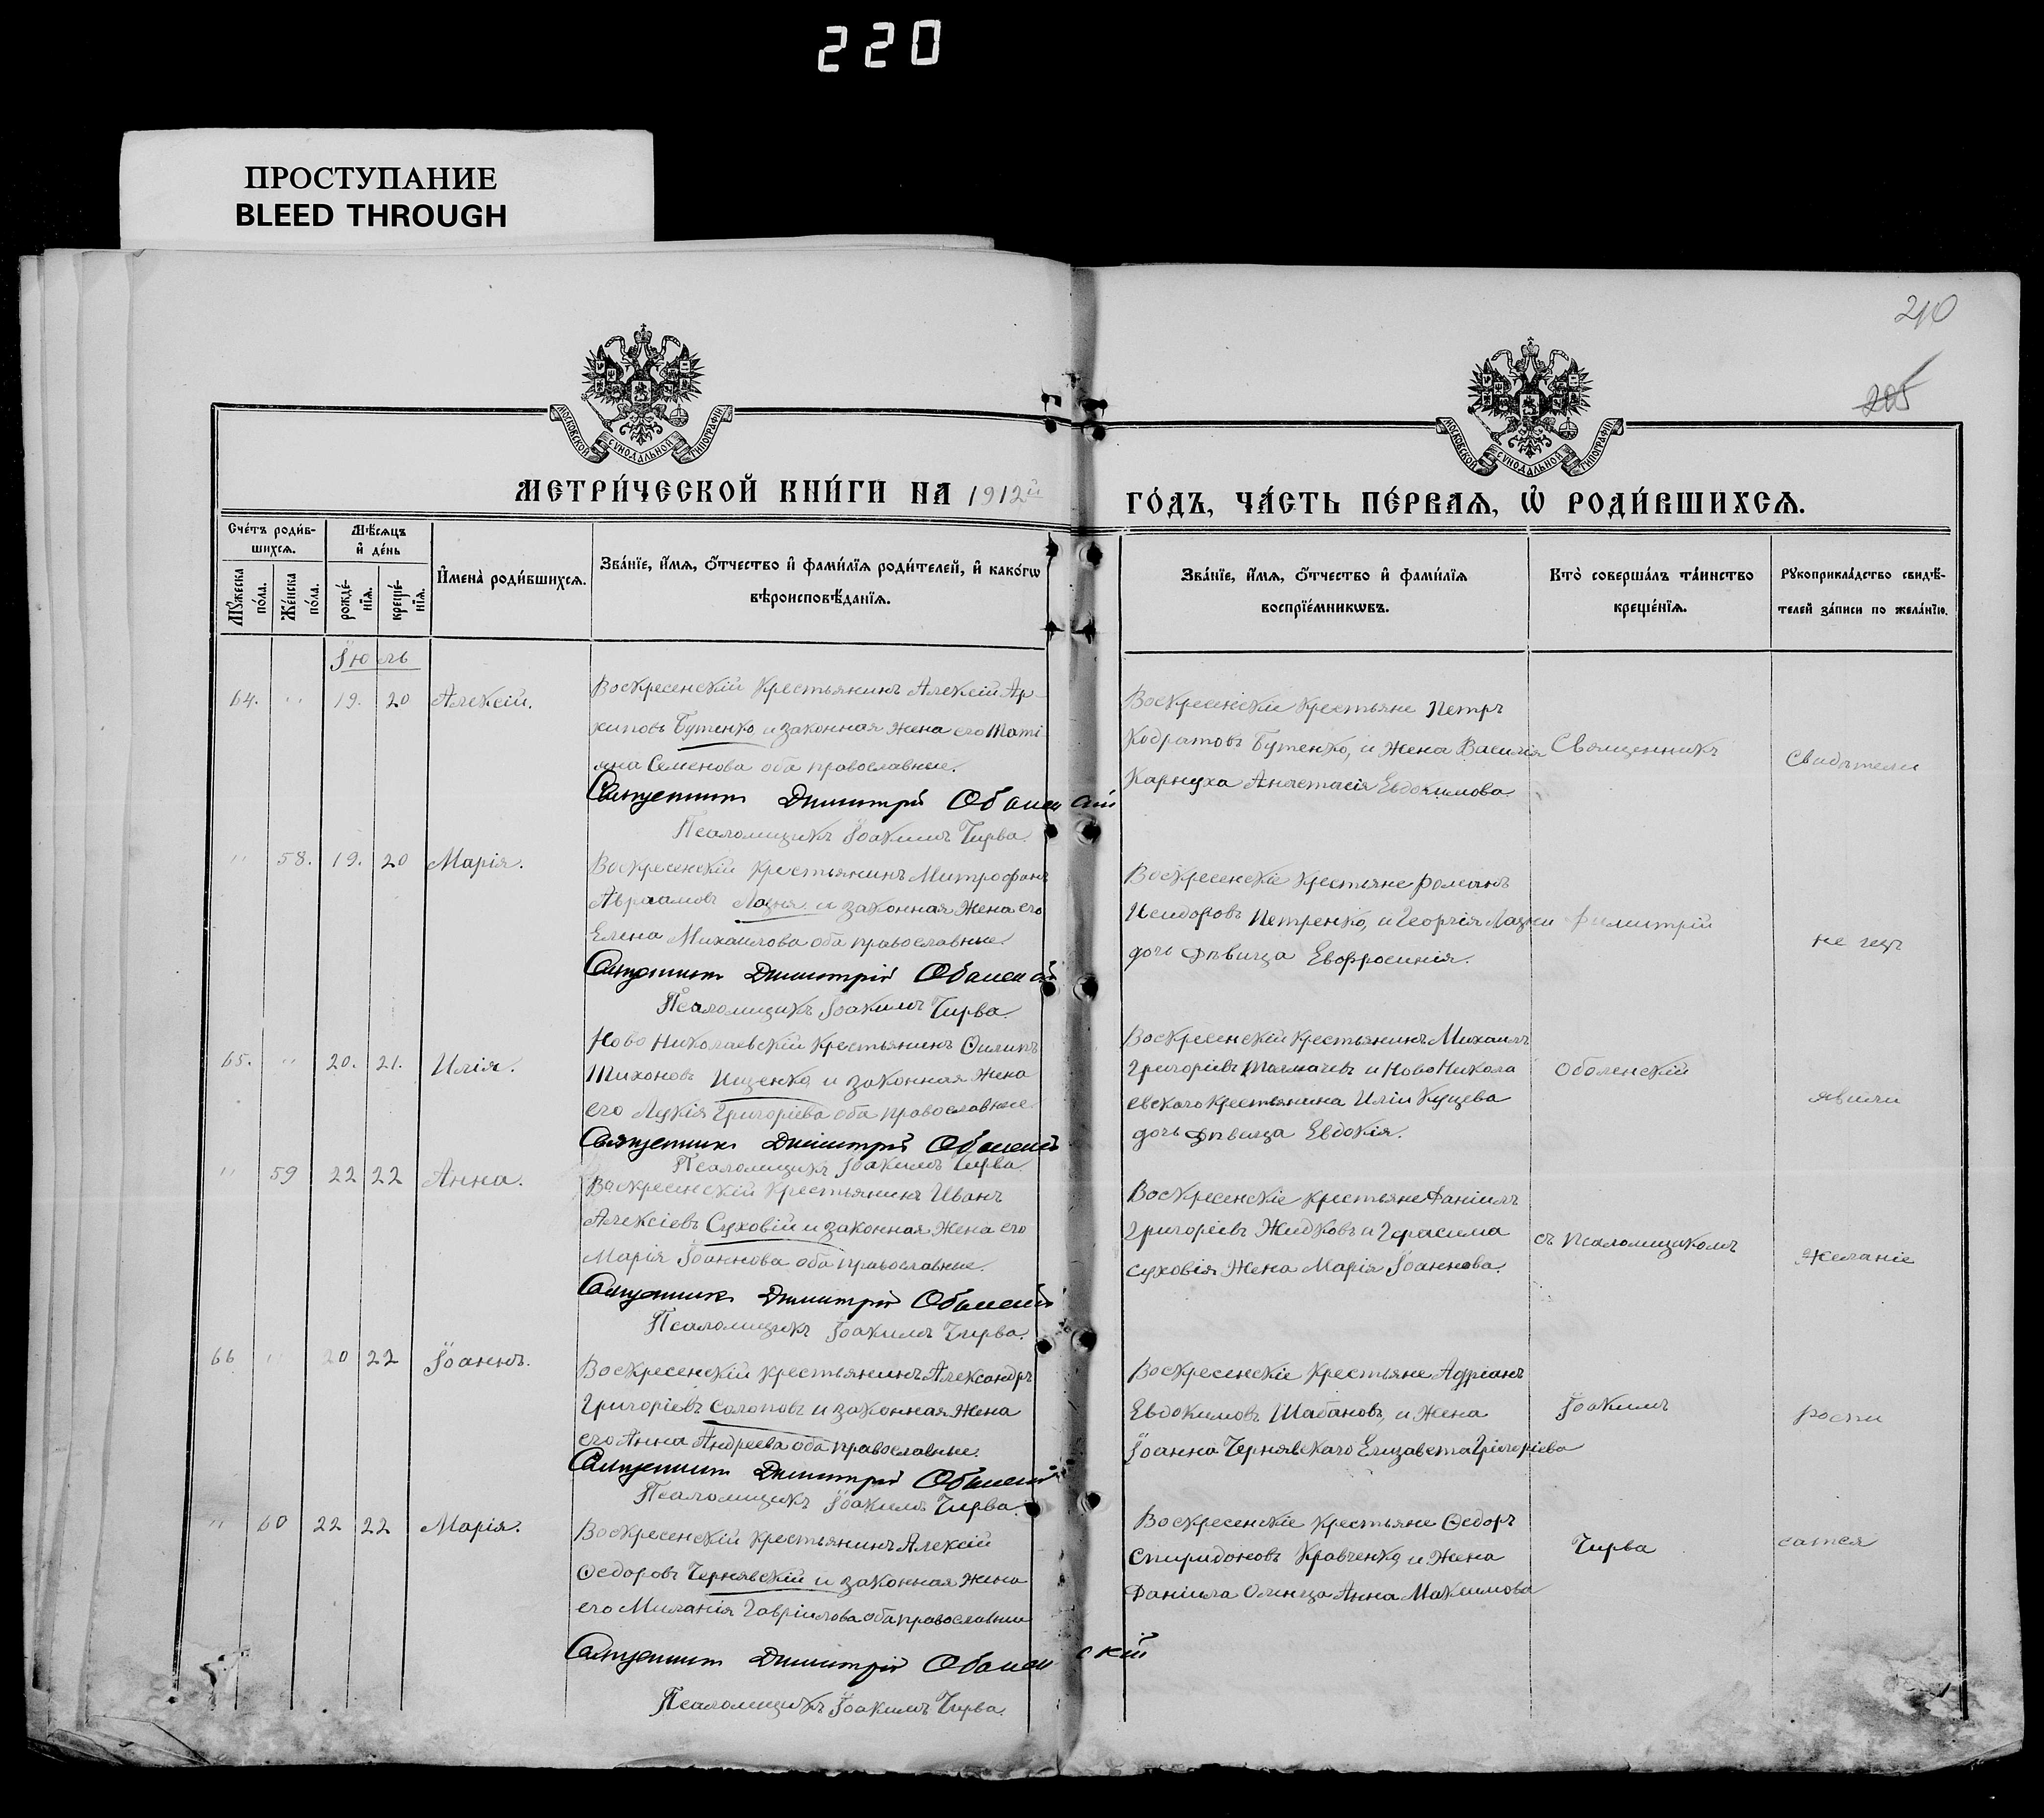 220
ПРОСТУПАНИЕ
BLEED THROUGH
210
205
МОСКОВСКОЙ СѴНОДАЛЬНОЙ ТИПОГРАФІИ
МОСКОВСКОЙ СѴНОДАЛЬНОЙ ТИПОГРАФІИ
МЕТРИ́ЧЕСКОЙ КНИ́ГИ НА 1912й
ГО́ДЪ, ЧА́СТЬ ПЕ́РВАЯ, Ѡ҆ РОДИ́ВШИХСЯ.
Сче́тъ роди́в-
шихся.
Мѣ́сяцъ
и҆ де́нь
Мꙋ́жеска
по́ла.
Же́нска
по́ла.
рожде́-
нїя.
креще́-
нїя.
И҆мена̀ роди́вшихся.
Зва́нїе, и҆́мя, ѻ҆́тчество и҆ фами́лїя роди́телей, и҆ како́гѡ
вѣроисповѣ́данїя.
Зва́нїе, и҆́мя, ѻ҆́тчество и҆ фами́лїя
воспрїе́мникѡвъ.
Кто̀ соверша́лъ та́инство
креще́нїя.
Рꙋкоприкла́дство свидѣ́-
телей за́писи по жела́нїю.
Іюль
64. " 19. 20 Алексій.
Воскресенскій крестьянинъ Алексій Ар-
хиповъ Бутенко и законная жена его Тати
яна Семенова оба православные.
Священникъ Димитрій Оболенскій
Псаломщикъ Іоакимъ Чирва.
Воскресенскіе крестьяне Петръ
Кодратовъ Бутенко, и жена Василія
Карнуха Анастасія Евдокимова.
Священникъ
Свидѣтели
" 58. 19. 20 Марія.
Воскресенскій крестьянинъ Митрофанъ
Авраамовъ Лазня и законная жена его
Елена Михаилова оба православные.
Священникъ Димитрій Оболенскій
Псаломщикъ Іоакимъ Чирва.
Воскресенскіе крестьяне Романъ
Исидоровъ Петренко, и Георгія Лазни
дочь дѣвица Евфросинія.
Димитрій
не изъ
65. " 20. 21. Илія.
Ново Николаевскій крестьянинъ Филипъ
Тихоновъ Ищенко и законная жена
его Лукія Григоріева оба православные
Священникъ Димитрій Оболенскій
Псаломщикъ Іоакимъ Чирва.
Воскресенскій крестьянинъ Михаилъ
Григоріевъ Толмачевъ и Ново Никола
евскаго крестьянина Иліи Куцева
дочь дѣвица Евдокія.
Оболенскій
явили
" 59 22 22 Анна.
Воскресенскій крестьянинъ Иванъ
Алексіевъ Суховій и законная жена его
Марія Іоаннова оба православные.
Священникъ Димитрій Оболенскій
Псаломщикъ Іоакимъ Чирва.
Воскресенскіе крестьяне Даніилъ
Григоріевъ Жидковъ и Герасима
Суховія жена Марія Іоаннова.
съ псаломщикомъ
желаніе
66 " 20 22 Іоаннъ.
Воскресенскій крестьянинъ Александръ
Григоріевъ Солоповъ и законная жена
его Анна Андреева оба православные.
Священникъ Димитрій Оболенскій
Псаломщикъ Іоакимъ Чирва.
Воскресенскіе крестьяне Адріанъ
Евдокимовъ Шабановъ, и жена
Іоанна Чернявскаго Елизавета Григоріева
Іоакимъ
роспи
" 60 22 22 Марія.
Воскресенскій крестьянинъ Алексій
Ѳедоровъ Чернявскій и законная жена
его Миланія Гавріилова оба православны
Священникъ Димитрій Оболенскій
Псаломщикъ Іоакимъ Чирва.
Воскресенскіе крестьяне Ѳедоръ
Спиридоновъ Кравченко, и жена
Даніила Олинца Анна Максимова
Чирва
сатся